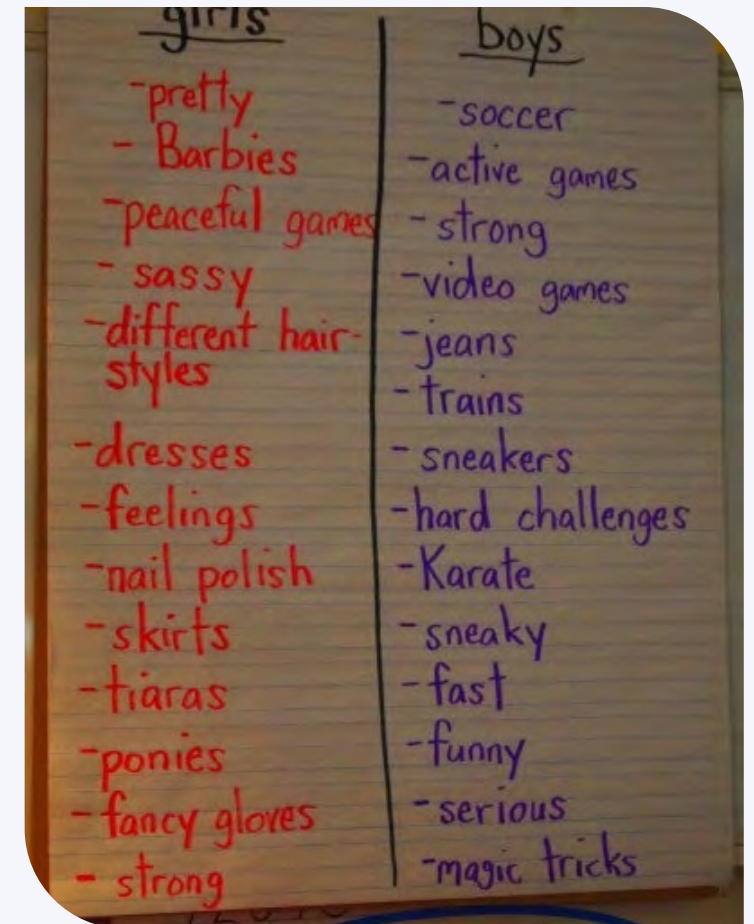 girls
- pretty
- Barbies
- peaceful games
- sassy
- different hair-
styles
- dresses
- feelings
- nail polish
- skirts
- tiaras
- ponies
- fancy gloves
- strong
boys
- soccer
- active games
- strong
- video games
- jeans
- trains
- sneakers
- hard challenges
- Karate
- sneaky
- fast
- funny
- serious
- magic tricks